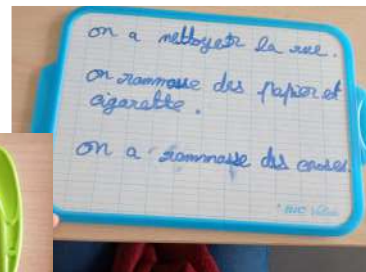 on a nettoyetr la rue.
on rammasse des papier et
cigarette.
on a rammasse des choses.